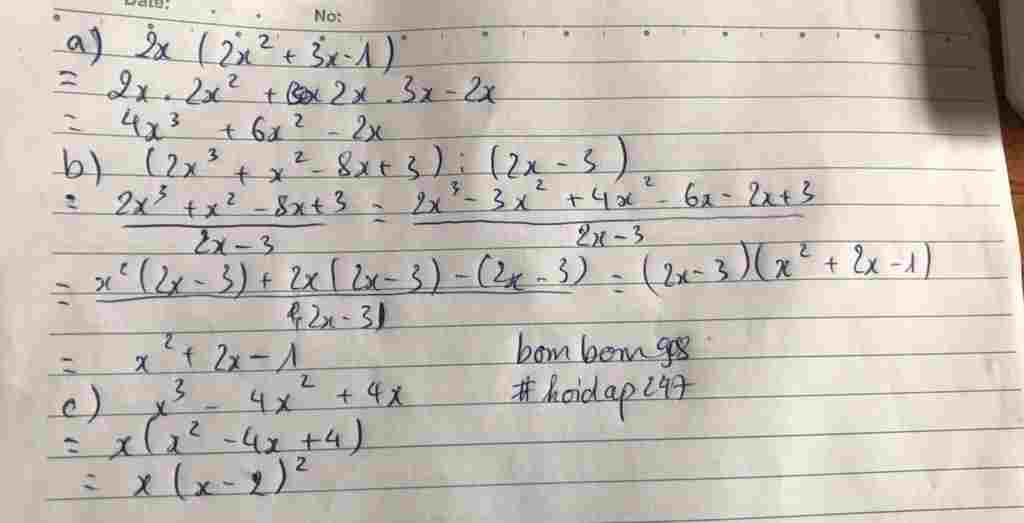 Date: No:
a) 2x (2x² + 3x - 1)
= 2x . 2x² + 2x . 3x - 2x
= 4x³ + 6x² - 2x
b) (2x³ + x² - 8x + 3) : (2x - 3)
= (2x³ + x² - 8x + 3)/(2x - 3) = (2x³ - 3x² + 4x² - 6x - 2x + 3)/(2x - 3)
= (x²(2x - 3) + 2x(2x - 3) - (2x - 3))/(2x - 3) = (2x - 3)(x² + 2x - 1)
= x² + 2x - 1 bombom908
c) x³ - 4x² + 4x #hoidap247
= x(x² - 4x + 4)
= x(x - 2)²